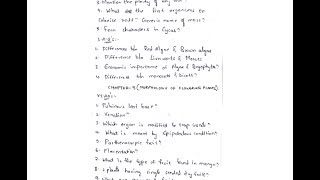 3. Mention the ploidy of any
4. What are the first organisms to
Colonise rock? Generic name of moss?
5. Few characters in Cycas?
S.A.Q's:-
1. Difference b/w Red Algae & Brown algae
2. Difference b/w Liverworts & Mosses
3. Economic importance of Algae & Bryophyta?
4. Difference b/w monocots & Dicots?
CHAPTER: 5 (MORPHOLOGY OF FLOWERING PLANTS)
V.S.A.Q's:-
1. Pulvinus leaf base?
2. Venation?
3. Which organ is modified to trap insects?
4. What is meant by Epipetalous condition?
5. Parthenocarpic fruit?
6. Placentation?
7. What is the type of fruit found in mango?
8. 2 plants having single seeded dry fruits?